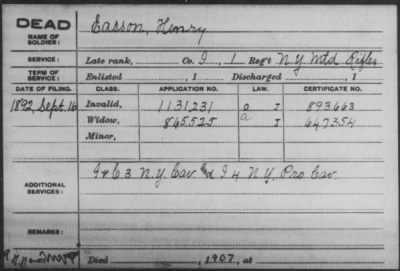 DEAD
NAME OF SOLDIER: Easson, Henry
SERVICE: Late rank, Co. I, 1 Reg't N.Y. Mtd Rifles
TERM OF SERVICE: Enlisted , 1 Discharged , 1
DATE OF FILING. CLASS. APPLICATION NO. LAW. CERTIFICATE NO.
1892, Sept. 16 Invalid, 1131231 J 893663
Widow, 865.525 a J 647354
Minor,
ADDITIONAL SERVICES: I & C 3 N.Y. Cav. I 4 N.Y. Pro Cav.
REMARKS:
Died , 1907, at